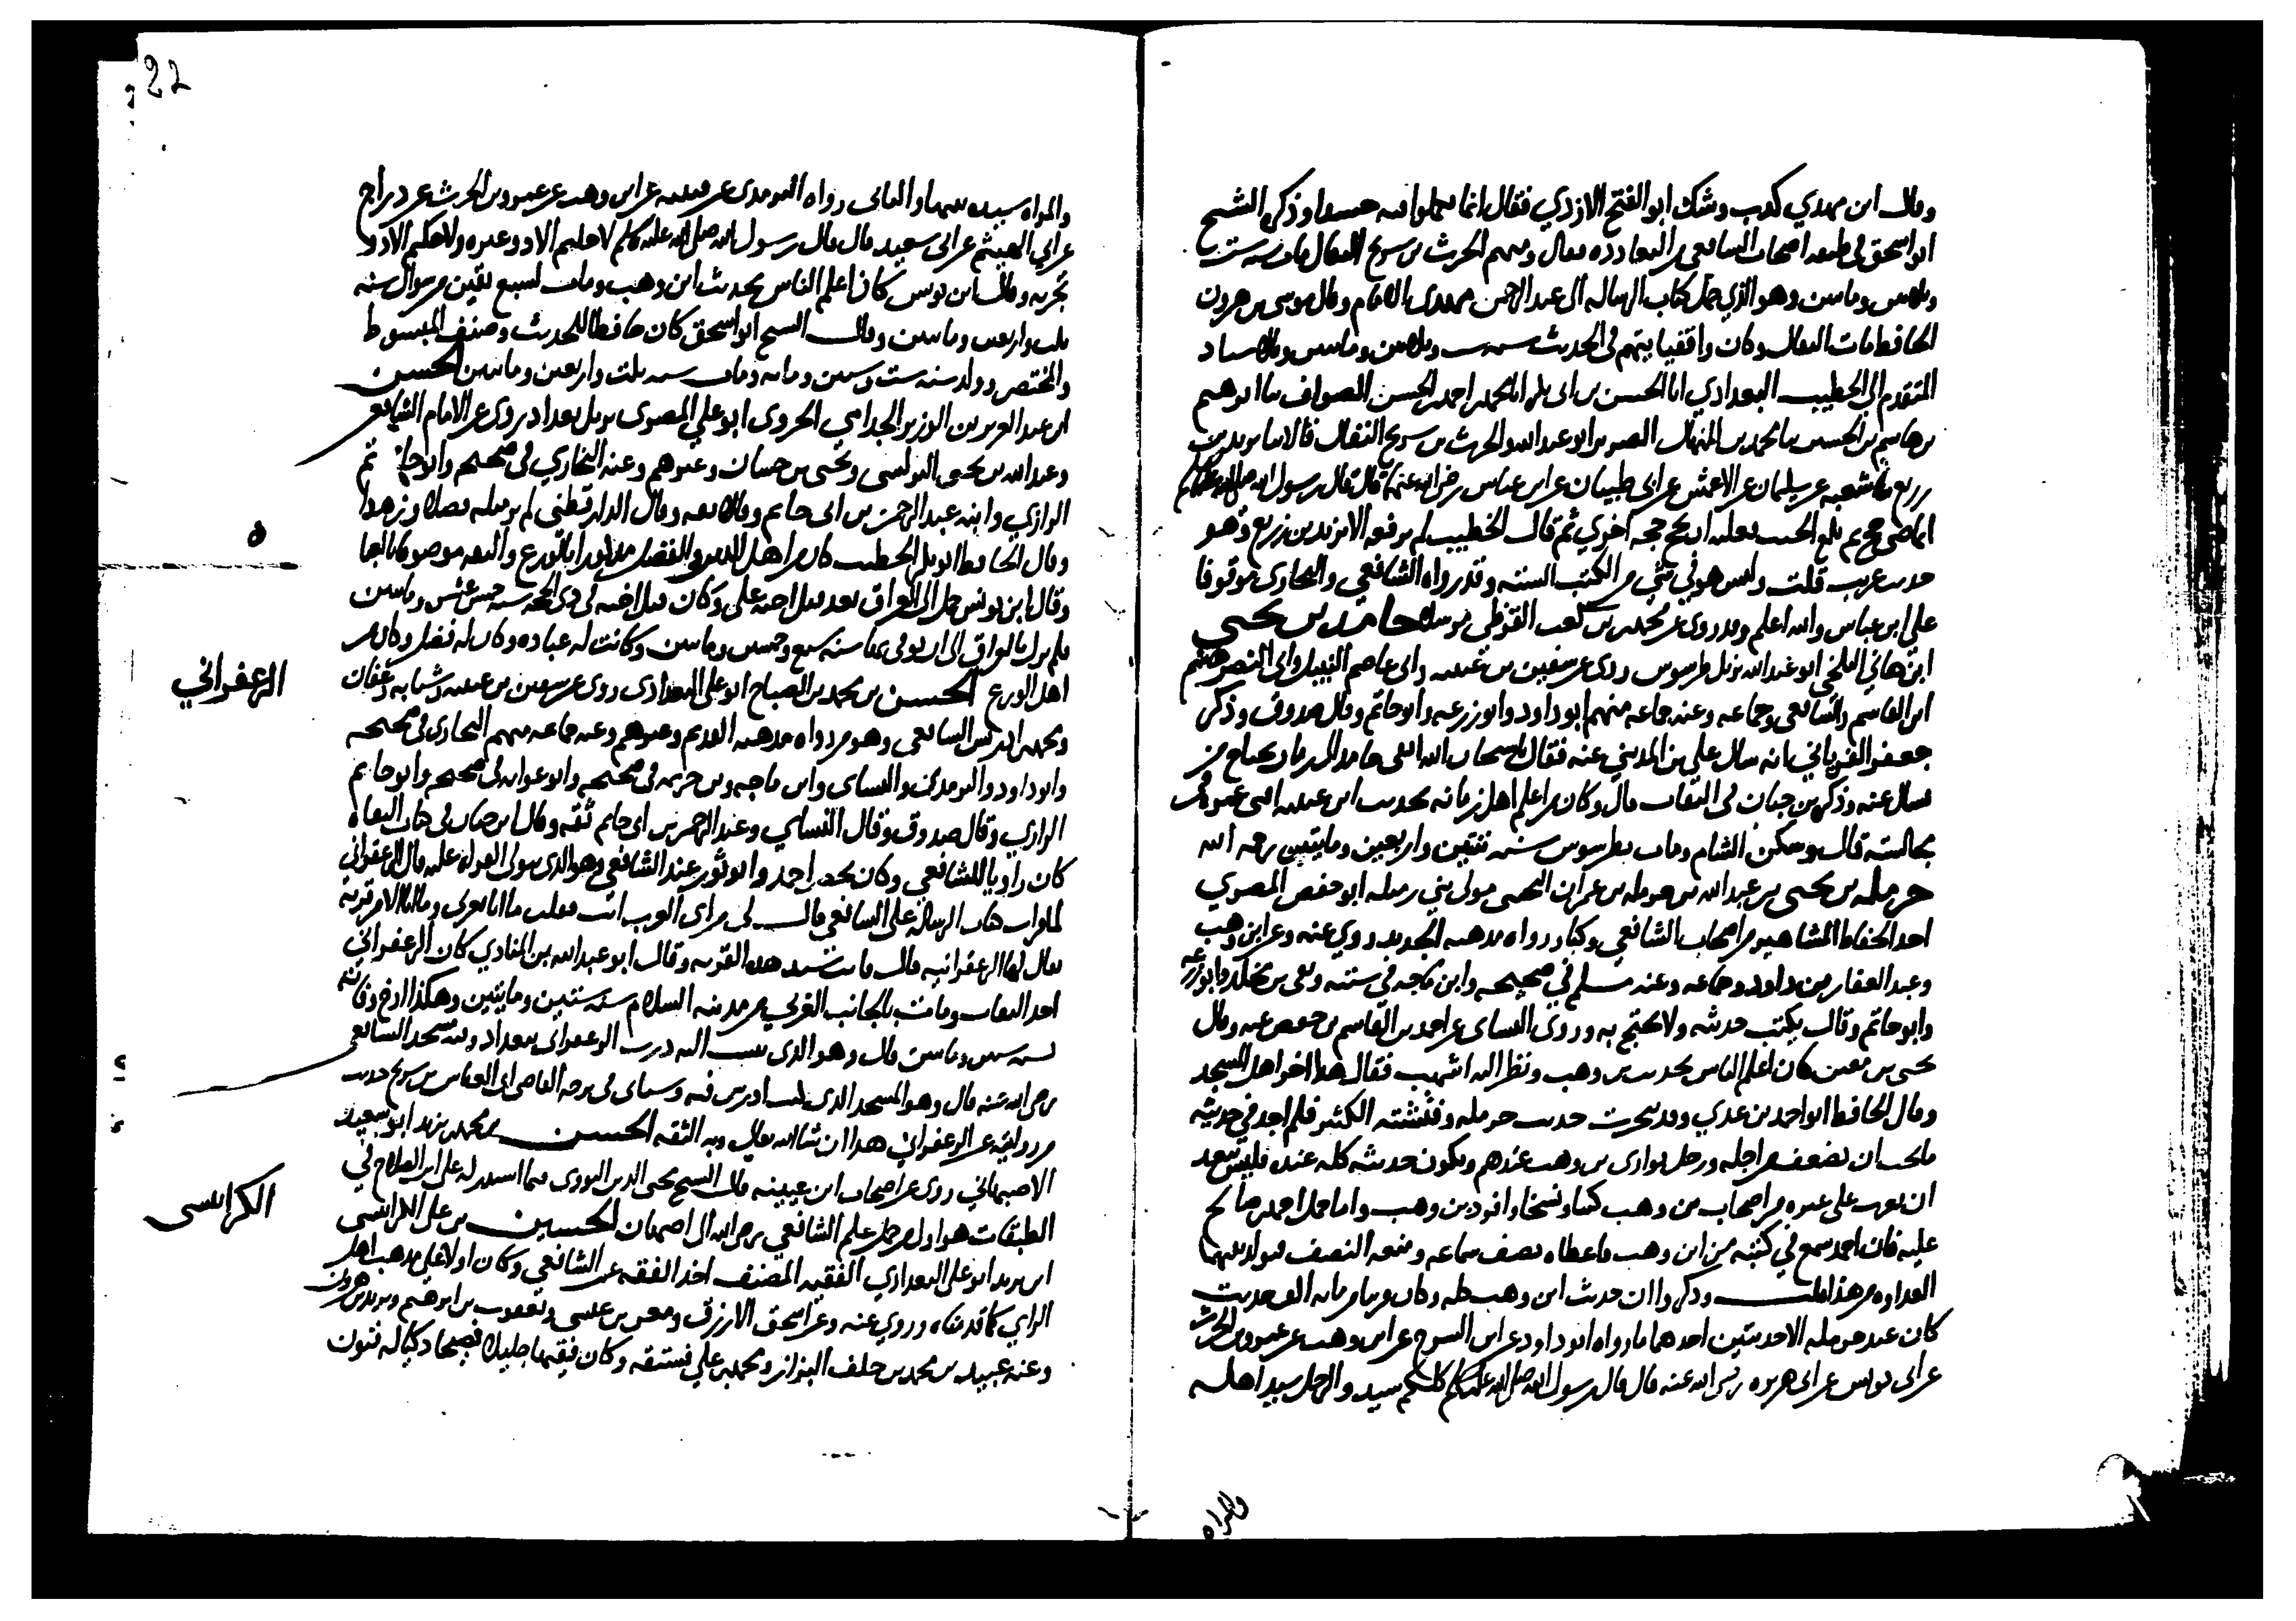 وقال ابن مهدي كذب وشك ابو الفتح الازدي فقال انما حسدا وذكره الشيخ
ابو اسحق في طبقه اصحاب الشافعي البغاددة فقال ومنهم الحرث بن سريج النقال مات سنه ست
وثلثين وماتين وهو الذي حمل كتاب الرساله الى عبد الرحمن مهدي الامام وقال موسى بن هرون
الحافظ مات النقال وكان واقفيا يتهم في الحديث سنه ست وثلاثين وماتين وبالاسناد
المتقدم الى الخطيب البغدادي انا الحسن بن ابي بكر انا محمد بن احمد بن الحسن الصواف ثنا ابرهيم
بن هاشم بن الحسين ثنا محمد بن المنهال الضرير ابو عبد الله والحرث بن سريج النقال قالا ثنا يزيد بن
زريع ثنا شعبه عن سليمان عن الاعمش عن ابي ظبيان عن ابن عباس رضي الله عنهما قال قال رسول الله صلى الله عليه وسلم
ايما صبي حج ثم بلغ الحنث فعليه ان يحج حجه اخرى ثم قال الخطيب لم يرفعه الا يزيد بن زريع وهو
حديث غريب قلت وليس هو في شي من الكتب السته وقد رواه الشافعي والبخاري موقوفا
على ابن عباس والله اعلم وقد روي عن محمد بن كعب القرظي مرسلا حامد بن يحيى
ابن هاني البلخي ابو عبد الله نزيل طرسوس روى عن سفين بن عيينه وابي عاصم النبيل وابي النضر هاشم
ابن القاسم والشافعي وجماعه وعنه جماعه منهم ابو داود وابو زرعه وابو حاتم وقال صدوق وذكر
جعفر الفريابي انه سال علي بن المديني عنه فقال يا سبحان الله ابقي حامد الى زمان يحتاج من
يسال عنه وذكره بن حبان في الثقات قال وكان من اعلم اهل زمانه بحديث ابن عيينه افنى عمره في
مجالسته قال وسكن الشام ومات بطرسوس سنه ثنتين واربعين وماتين رحمه الله
حرمله بن يحيى بن عبد الله بن حرمله بن عمران التجيبي مولى بني زميله ابو حفص المصري
احد الحفاظ المشاهير من اصحاب الشافعي وكبار رواه مذهبه الجديد روى عنه وعن ابن وهب
وعبد الغفار بن داود وجماعه وعنه مسلم في صحيحه وابن ماجه في سننه وبقي بن مخلد وابو زرعه
وابو حاتم وقال يكتب حديثه ولا يحتج به وروى النساى عن احمد بن القاسم بن حفص عنه وقال
يحيى بن معين كان اعلم الناس بحديث بن وهب ونظر اليه اشهب فقال هذا خير اهل المسجد
وقال الحافظ ابو احمد بن عدي وقد تبحرت حديث حرمله وفتشته الكثير فلم اجد في حديثه
ما يجب ان يضعف من اجله ورجل توارى بن وهب عندهم ويكون حديثه كله عنده فليس ببعيد
ان يغرب على غيره من اصحاب بن وهب كتبا ونسخا وافراد بن وهب واما حمل احمد بن صالح
عليه فان احمد سمع في كتبه من ابن وهب فاعطاه نصف سماعه ومنعه النصف فتولد بينهما
العداوه من هذا قلت وذكروا ان حديث ابن وهب كله وكان نحو من مايه الف حديث
كان عند حرمله الا حديثين احدهما ما رواه ابو داود عن ابن السرح عن ابن وهب عن عمرو بن الحرث
عن ابي يونس عن ابي هريره رضي الله عنه قال قال رسول الله صلى الله عليه وسلم كلكم سيد والرجل سيد اهله
والمراه
22
والمراه سيده بيتها والثاني رواه الترمذي عن قتيبه عن ابن وهب عن عمرو بن الحرث عن دراج
عن ابي الهيثم عن ابي سعيد قال قال رسول الله صلى الله عليه وسلم لا حليم الا ذو عثره ولا حكيم الا ذو
تجربه وقال ابن يونس كان اعلم الناس بحديث ابن وهب ومات لتسع بقين من شوال سنه
ثلث واربعين وماتين وقال الشيخ ابو اسحق كان حافظا للحديث وصنف المبسوط
والمختصر وولد سنه ست وستين ومايه ومات سنه ثلث واربعين وماتين الحسن
ابن عبد العزيز بن الوزير الجذامي الجروي ابو علي المصري نزيل بغداد روى عن الامام الشافعي
وعبد الله بن يحيى البرلسي ويحيى بن حسان وغيرهم وعنه البخاري في صحيحه وابو حاتم
الرازي وابنه عبد الرحمن بن ابي حاتم وقال ثقه وقال الدارقطني لم ير مثله فضلا وزهدا
وقال الحافظ ابو بكر الخطيب كان من اهل الدين والفضل مذكورا بالورع والثقه موصوفا بالعباده
وقال ابن يونس حمل الى العراق بعد قتل اخيه علي وكان قتل اخيه في ذي الحجه سنه خمس عشر وماتين
فلم يزل بالعراق الى ان توفي بها سنه سبع وخمسين وماتين وكانت له عباده وكان له فضل وكان من
اهل الورع الحسن بن محمد بن الصباح ابو علي البغدادي روى عن سفين بن عيينه وشبابه وعفان
ومحمد بن ادريس الشافعي وهو من رواه مذهبه القديم وغيرهم وعنه جماعه منهم البخاري في صحيحه
وابو داود والترمذي والنساى وابن ماجه وبن خزيمه في صحيحه وابو عوانه في صحيحه وابو حاتم
الرازي وقال صدوق وقال النساي وعبد الرحمن بن ابي حاتم ثقه وقال ابن حبان في كتاب الثقات
كان راويا للشافعي وكان يحضر احمد وابو ثور عند الشافعي وهو الذي يتولى القراه عليه قال الزعفراني
لما قرات كتاب الرساله على الشافعي قال لي من اى العرب انت فقلت ما انا بعربي وما انا الا من قريه
يقال لها الزعفرانيه قال فانت سيد هذه القريه وقال ابو عبد الله بن المنادي كان الزعفراني
احد الثقات ومات بالجانب الغربي من مدينه السلام سنه ستين وماتين وهكذا ارخ وفاته
سنه ستين وماتين قال وهو الذي ينسب اليه درب الزعفراني ببغداد وفيه مسجد الشافعي
رضي الله عنه قال وهو المسجد الذي كنت ادرس فيه وسياتي في ترجمه القاضي ابي العباس بن سريج حديث
من روايته عن الزعفراني هذا ان شا الله تعالى وبه الثقه الحسن بن محمد بن يزيد ابو سعيد
الاصبهاني روى عن اصحاب ابن عيينه قال الشيخ محيى الدين النووي فيما استدركه على ابن الصلاح في
الطبقات هو اول من حمل علم الشافعي رضي الله الى اصبهان الحسين بن علي الكرابيسي
ابن يزيد ابو علي البغدادي الفقيه المصنف اخذ الفقه عن الشافعي وكان اولا على مذهب اهل
الراي كما قدمناه وروى عنه وعن اسحق الازرق ومعن بن عيسى ويعقوب بن ابرهيم ويزيد بن هرون
وعنه عبيد بن محمد بن خلف البزاز ومحمد بن علي فستقه وكان فقيها جليلا فصيحا ذكيا له فنون
الزعفراني
الكرابيسي